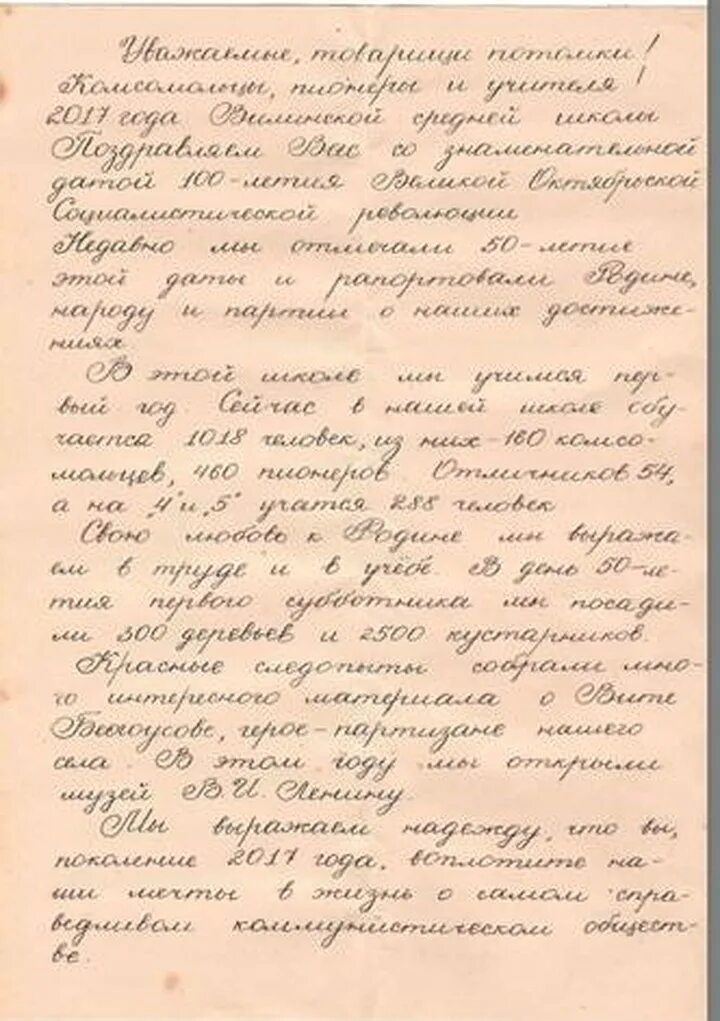 Уважаемые, товарищи потомки!
Комсомольцы, пионеры и учителя!
2017 года Вилинской средней школы
Поздравляем Вас со знаменательной
датой 100-летия Великой Октябрьской
Социалистической революции
Недавно мы отмечали 50-летие
этой даты и рапортовали Родине,
народу и партии о наших достиже-
ниях.
В этой школе мы учимся пер-
вый год. Сейчас в нашей школе обу-
чается 1018 человек, из них - 160 комсо-
мольцев, 460 пионеров. Отличников 54,
а на „4" и „5" учатся 288 человек
Свою любовь к Родине мы выража-
ем в труде и в учёбе. В день 50-ле-
тия первого субботника мы посади-
ли 300 деревьев и 2500 кустарников.
Красные следопыты собрали мно-
го интересного материала о Вите
Белоусове, герое-партизане нашего
села. В этом году мы открыли
музей В.И. Ленину.
Мы выражаем надежду, что вы,
поколение 2017 года, воплотите на-
ши мечты в жизнь о самом спра-
ведливом коммунистическом общест-
ве.